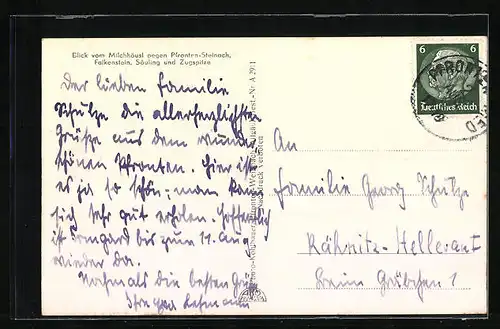 Blick vom Milchhäusl gegen Pfronten-Steinach,
Falkenstein, Säuling und Zugspitze
Der lieben Familie
Schütze die allerherzlichsten
Grüße aus dem wunder-
schönen Pfronten. Hier ist
es ja so schön, man kann
sich sehr gut erholen. Hoffentlich
ist Irmgard bis zum 11. Aug.
wieder da.
Nochmals die besten Grüße
Lehmann
An
Familie Georg Schütze
Rähnitz-Hellerau
6 6
Deutsches Reich
Nachdruck verboten